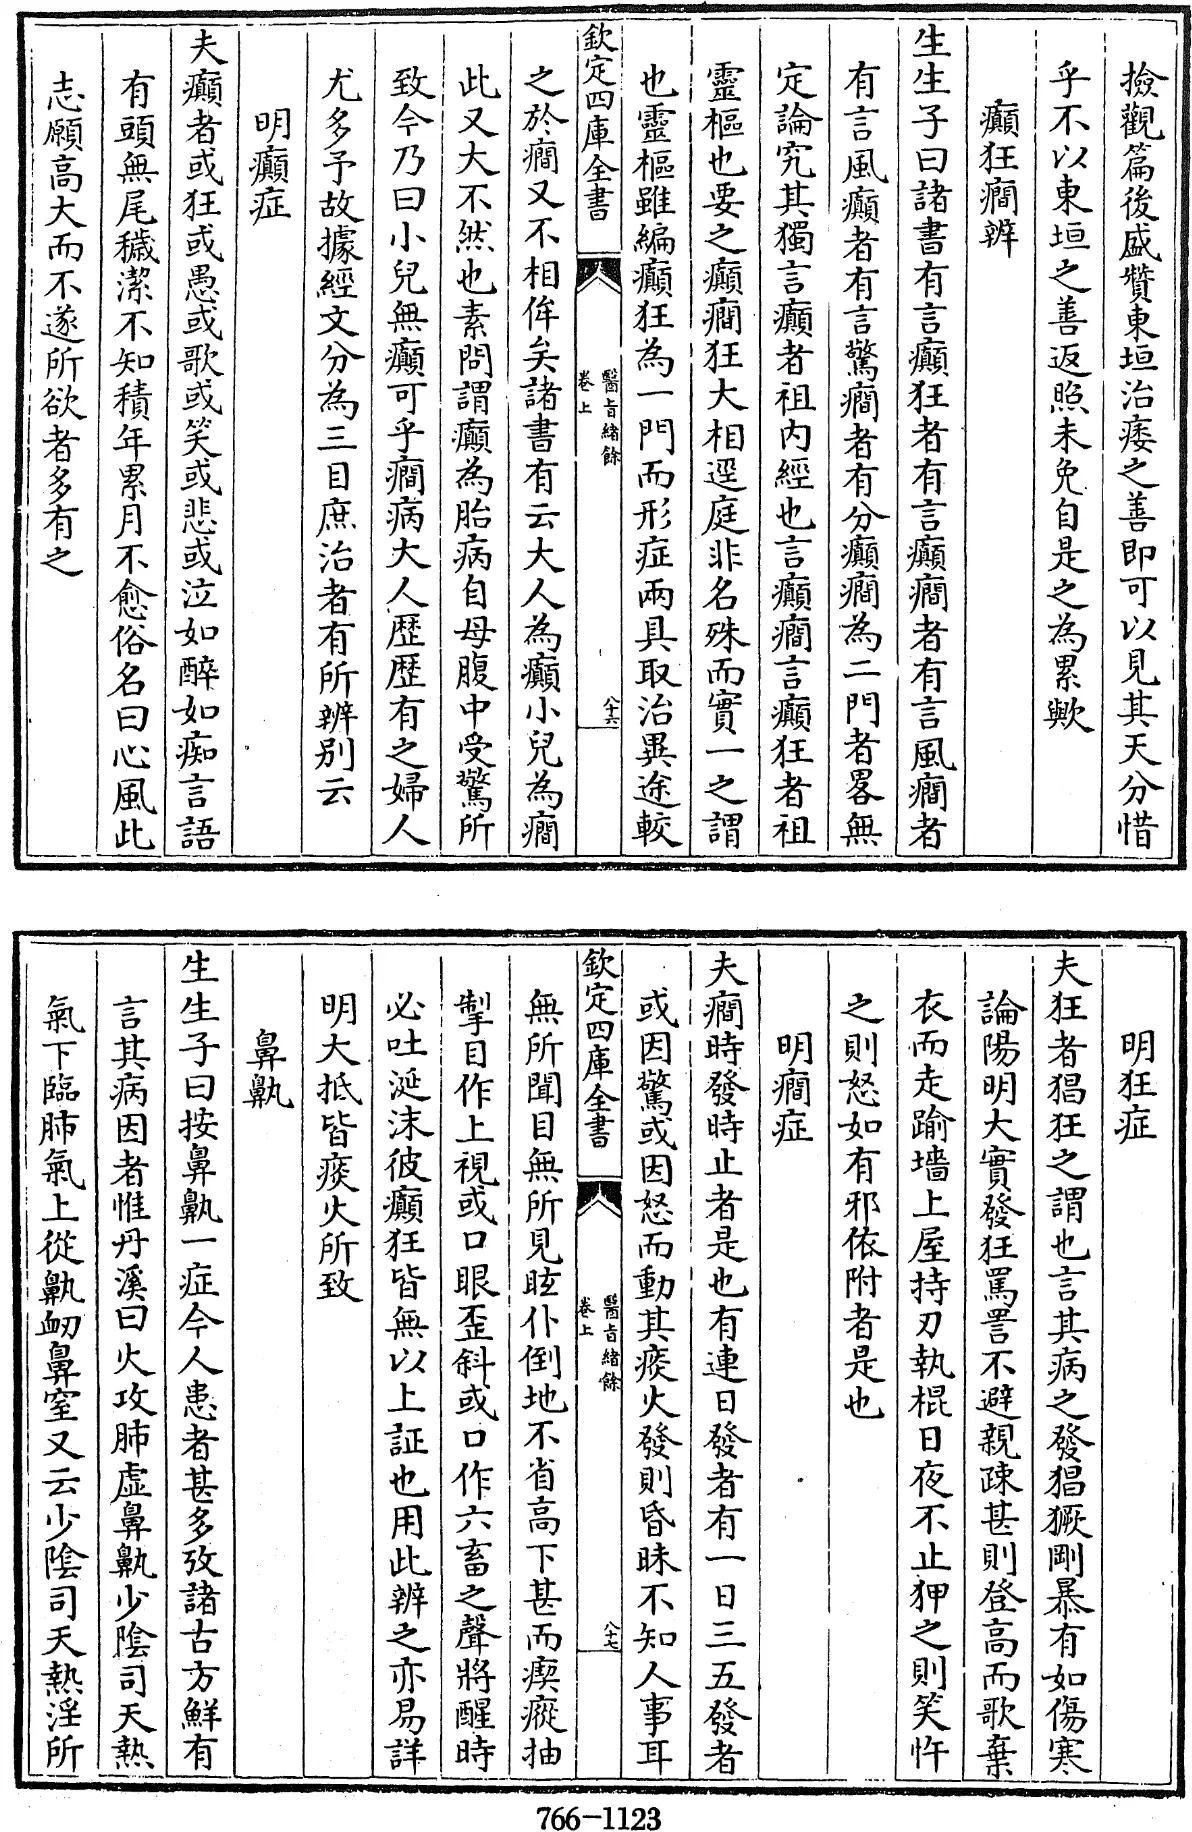 撿觀篇後盛贊東垣治痿之善即可以見其天分惜
乎不以東垣之善返照未免自是之為累歟
癲狂癇辨
生生子曰諸書有言癲狂者有言癲癇者有言風癇者
有言風癲者有言驚癇者有分癲癇為二門者畧無
定論究其獨言癲者祖内經也言癲癇言癲狂者祖
靈樞也要之癲癇狂大相逕庭非名殊而實一之謂
也靈樞雖編癲狂為一門而形症兩具取治異途較
欽定四庫全書
醫旨緒餘
卷上
八十六
之於癇又不相侔矣諸書有云大人為癲小兒為癇
此又大不然也素問謂癲為胎病自母腹中受驚所
致今乃曰小兒無癲可乎癇病大人歷歷有之婦人
尤多予故據經文分為三目庶治者有所辨别云
明癲症
夫癲者或狂或愚或歌或笑或悲或泣如醉如痴言語
有頭無尾穢潔不知積年累月不愈俗名曰心風此
志願高大而不遂所欲者多有之
明狂症
夫狂者猖狂之謂也言其病之發猖獗剛暴有如傷寒
論陽明大實發狂罵詈不避親疎甚則登高而歌棄
衣而走踰墻上屋持刃執棍日夜不止狎之則笑忤
之則怒如有邪依附者是也
明癇症
夫癇時發時止者是也有連日發者有一日三五發者
或因驚或因怒而動其痰火發則昏昧不知人事耳
欽定四庫全書
醫旨緒餘
卷上
八十七
無所聞目無所見眩仆倒地不省高下甚而瘈瘲抽
掣目作上視或口眼歪斜或口作六畜之聲將醒時
必吐涎沫彼癲狂皆無以上証也用此辨之亦易詳
明大抵皆痰火所致
鼻鼽
生生子曰按鼻鼽一症今人患者甚多攷諸古方鮮有
言其病因者惟丹溪曰火攻肺虚鼻鼽少陰司天熱
氣下臨肺氣上從鼽衂鼻窒又云少陰司天熱淫所
766-1123